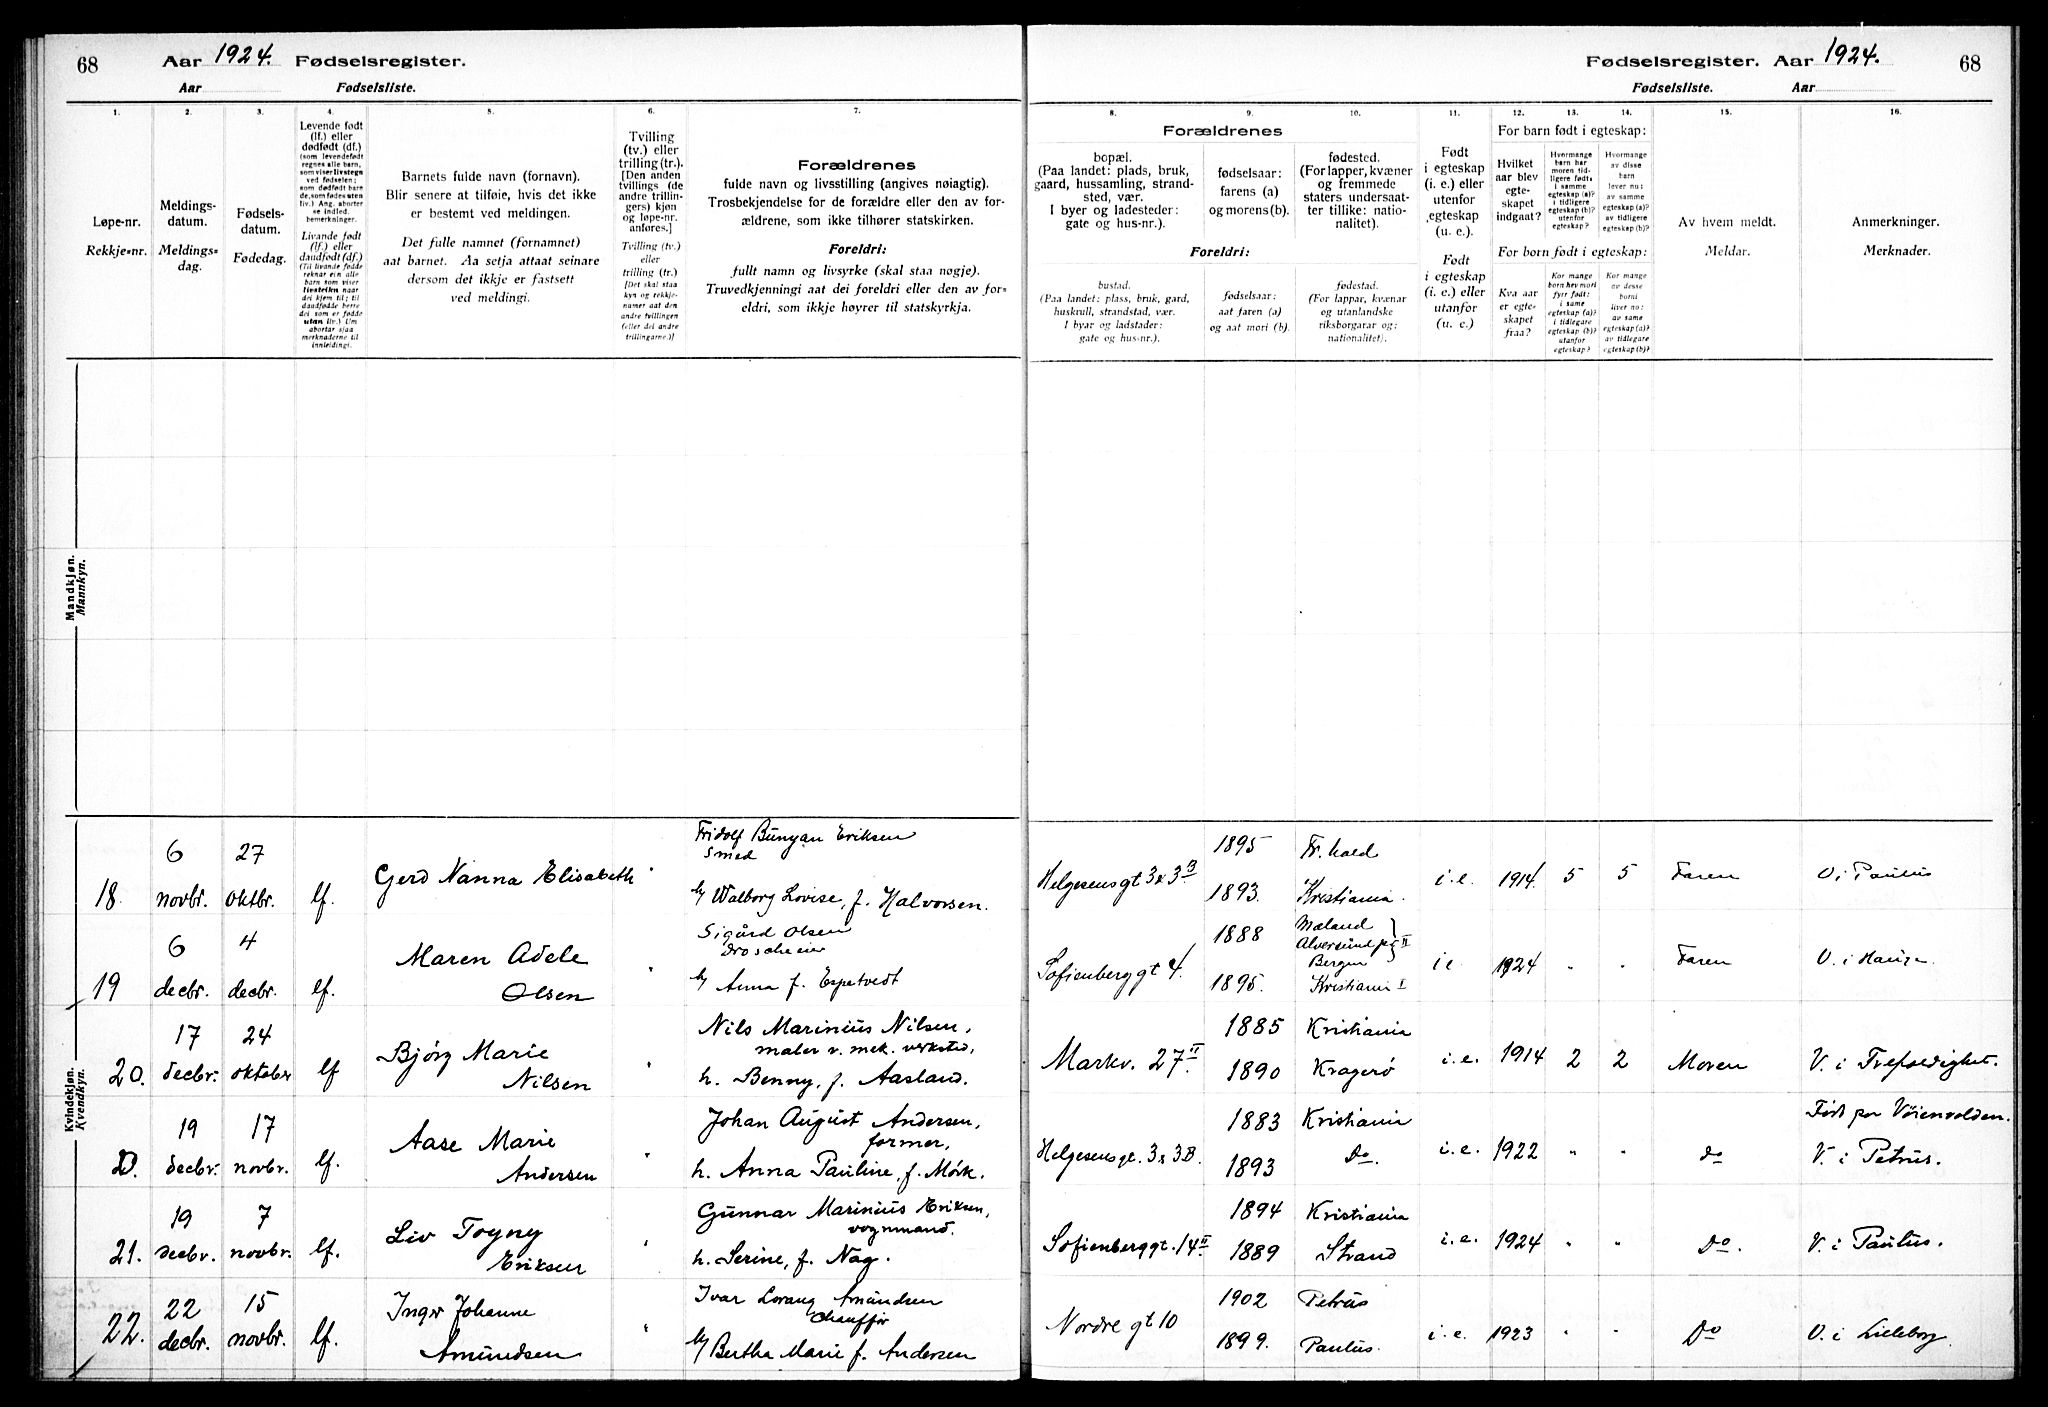 68 Aar 1924. Fødselsregister.
Aar Fødselsliste.
Fødselsregister. Aar 1924. 68
Fødselsliste. Aar
1. 2. 3. 4. 5. 6. 7.
Løpe-nr.
Rekkje-nr.
Meldings-
datum.
Meldings-
dag.
Fødsels-
datum.
Fødedag.
Levende født
(lf.) eller
dødfødt (df.)
(som levendefødt
regnes alle barn,
som viser livstegn
ved fødselen;
som dødfødt barn
de, som fødes uten
liv.) Ang. aborter
se indled.
bemerkninger.
Livande født
(lf.) eller
daudfødt (df.)
(Til livande fødde
reknar ein alle
barn som viser
livsteikn naar
dei kjem til; til
daudfødde berre
dei som er fødde
utan liv.) Um
abortar sjaa
merknaderne til
innleidingi.
Barnets fulde navn (fornavn).
Blir senere at tilføie, hvis det ikke
er bestemt ved meldingen.
Det fulle namnet (fornamnet)
aat barnet. Aa setja attaat seinare
dersom det ikkje er fastsett
ved meldingi.
Tvilling
(tv.) eller
trilling (tr.).
[Den anden
tvillings (de
andre trillin-
gers) kjøn
og løpe-nr.
anføres.]
Tvilling (tv.)
eller
trilling (tr.)
[Det skal staa
kyn og rekkje-
numer aat den
andre tvillingen
(eller dei andre
trillingarne.)]
Forældrenes
fulde navn og livsstilling (angives nøiagtig).
Trosbekjendelse for de forældre eller den av for-
ældrene, som ikke tilhører statskirken.
Foreldri:
fullt namn og livsyrke (skal staa nøgje).
Truvedkjenningi aat dei foreldri eller den av for-
eldri, som ikkje høyrer til statskyrkja.
8. 9. 10. 11. 12. 13. 14. 15. 16.
Forældrenes
bopæl.
(Paa landet: plads, bruk,
gaard, hussamling, strand-
sted, vær.
I byer og ladesteder:
gate og hus-nr.).
fødselsaar:
farens (a)
og morens (b).
fødested.
(For lapper, kvæner
og fremmede
staters undersaat-
ter tillike: natio-
nalitet).
Foreldri:
bustad.
(Paa landet: plass, bruk, gard,
huskrull, strandstad, vær.
I byar og ladstader:
gate og hus-nr.).
fødselsaar:
aat faren (a)
og aat mori (b).
fødestad.
(For lappar, kvænar
og utanlandske
riksborgarar og:
nationalitet).
Født
i egteskap
(i. e.) eller
utenfor
egteskap
(u. e.).
Født
i egteskap
(i. e.) eller
utanfor
(u. e.)
For barn født i egteskap:
Hvilket
aar blev
egte-
skapet
indgaat?
Hvormange
barn har
moren tid-
ligere født,
i samme
egteskap (a)?
i tidligere
egteskap (b)?
utenfor
egteskap?
Hvormange
av disse
barn
lever nu:
av samme
egteskap (a)?
av tidligere
egteskap (b)?
For born født i egteskap:
Kva aar
er egte-
skapet
fraa?
Kor mange
born hev mori
fyrr født:
i same
egteskap (a)?
i tidlegare
egteskap (b)?
utanfor
egteskap?
Kor mange
av desse
borni
liver no:
av same
egteskap (a)?
av tidlegare
egteskap (b)?
Av hvem meldt.
Meldar.
Anmerkninger.
Merknader.
Mandkjøn.
Mannkyn.
Kvindekjøn.
Kvendkyn.
6 27 Fridolf Bunyan Eriksen 1895 Fr.hald
Smed
18. novbr. oktbr. lf. Gerd Nanna Elisabeth " Walborg Lovise, f. Halvorsen. Helgesensgt 3 x 3B 1893. Kristiania. i. e. 1914. 5 5 Faren V. i Paulus
6 4 Sigurd Olsen 1888 Mæland
Maren Adele Droscheeier Alversund
Bergen
19 decbr. decbr. lf. Olsen " Anna f. Espetvedt Sofienberggt 4. 1895. Kristiania i e 1924 " " Faren V. i Hauge
17 24 Nils Marinius Nilsen, 1885 Kristiania
Bjørg Marie maler v. mek. verksted,
20. decbr. oktober lf Nilsen " h. Benny, f. Aasland. Markv. 27 II 1890 Kragerø i. e. 1914 2 2 Moren V. i Trefoldighet.
19 17 Johan August Andersen, 1883 Kristiania Født paa Vøienvolden.
Aase Marie former,
20. decbr. novbr. lf. Andersen " h. Anna Pauline, f. Mørk. Helgesensgt. 3 x 3B. 1893 Do. i. e. 1922 " " do V. i Petrus.
19 7 Gunnar Marinius Eriksen, 1894 Kristiania
Liv Togny vognmand.
21. decbr. novbr. lf. Eriksen " h. Serine, f. Nag. Sofienberggt. 14 II 1889 Strand i. e. 1924 " " Do. V. i Paulus.
22 15 Ivar Lorang Amundsen 1902 Petrus
Inger Johanne Chauffør
22. decbr. novbr. lf. Amundsen " Bertha Marie f. Andersen Nordre gt 10 1899. Paulus. i. e. 1923 " " Do V. i Lilleborg